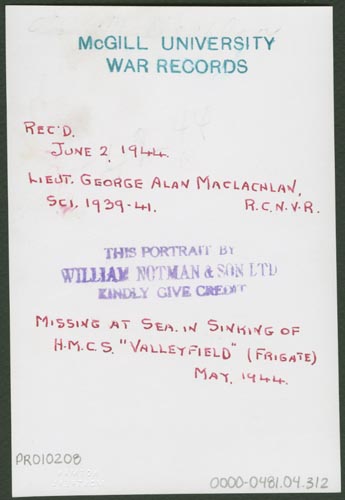 McGILL UNIVERSITY
WAR RECORDS
REC'D.
JUNE 2, 1944.
LIEUT. GEORGE ALAN MACLACHLAN,
SCI. 1939-41. R.C.N.V.R.
THIS PORTRAIT BY
WILLIAM NOTMAN & SON LTD
KINDLY GIVE CREDIT
MISSING AT SEA. IN SINKING OF
H.M.C.S. "VALLEYFIELD" (FRIGATE)
MAY, 1944.
PR010208
0000-0481.04.312